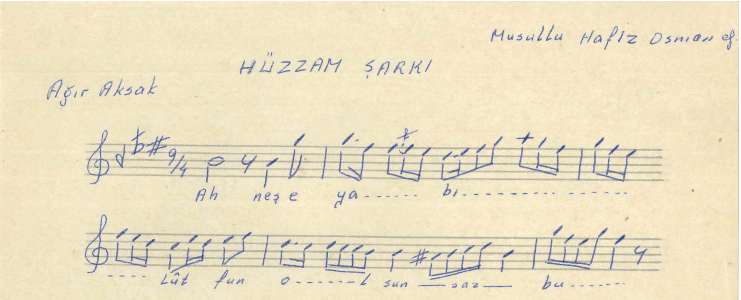 Musullu Hafız Osman ef.
HÜZZAM ŞARKI
Ağır Aksak
9/4
Ah neşe ya...... bı..................
..... Lût fun o......l sun — saz — bu......